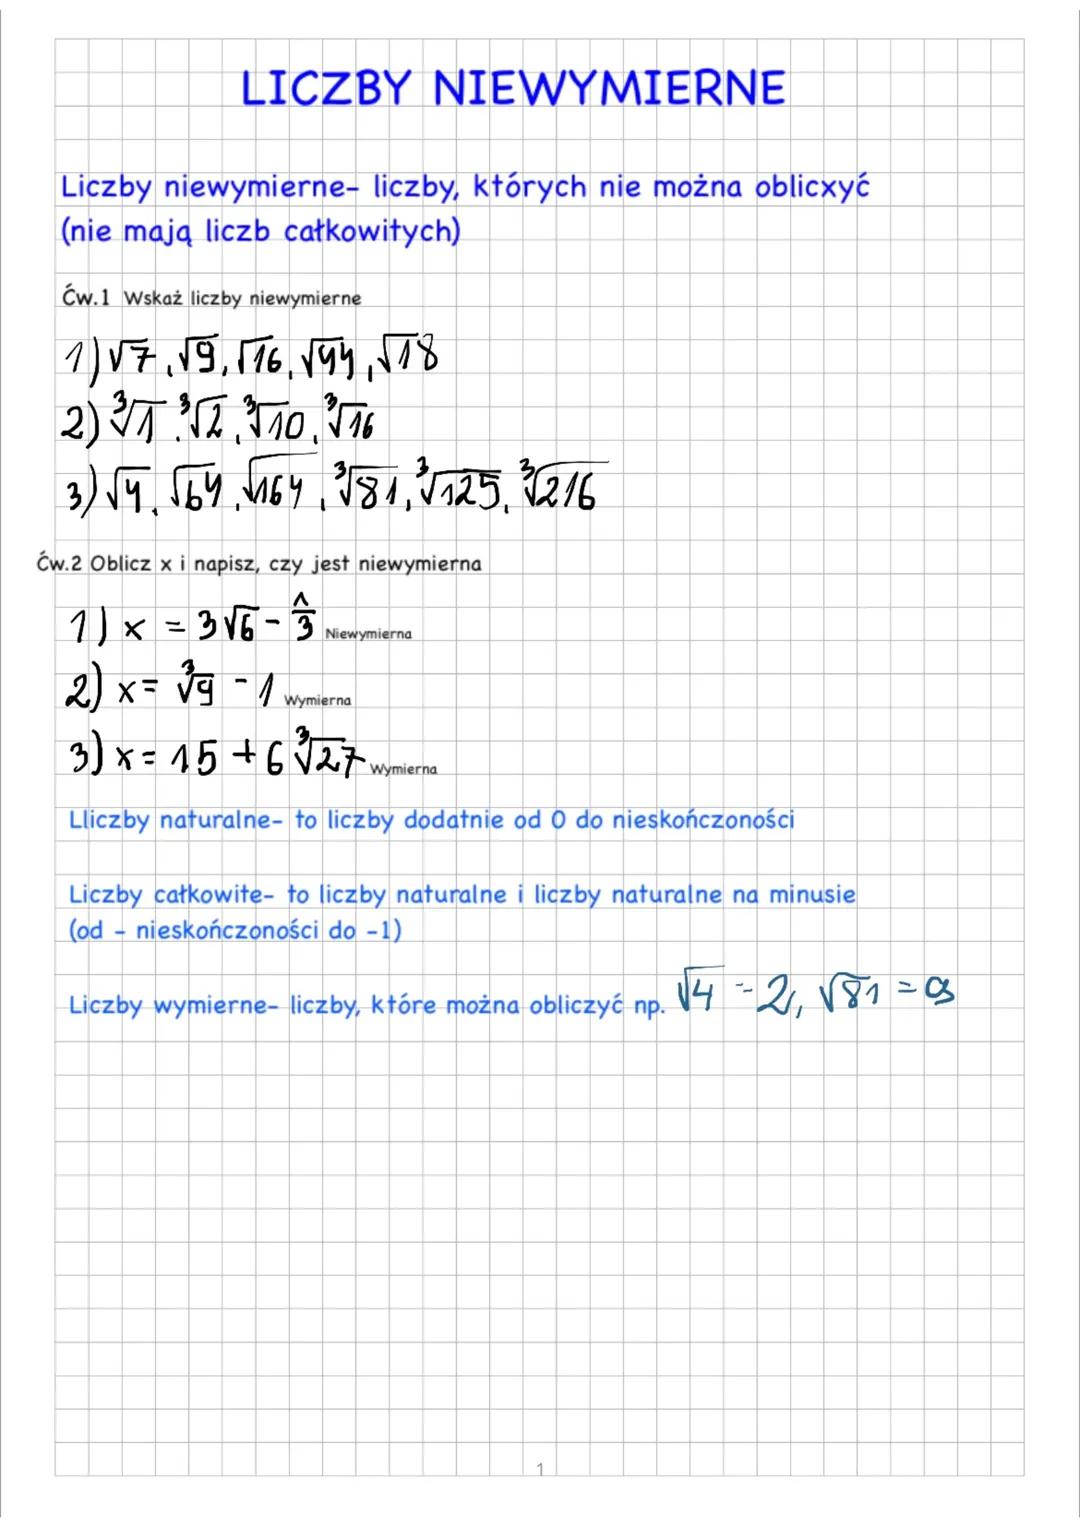 LICZBY NIEWYMIERNE
Liczby niewymierne- liczby, których nie można oblicxyć
(nie mają liczb całkowitych)
Ćw.1 Wskaż liczby niewymierne
1) √7, √9, √16, √44, √18
2) ³√1, ³√2, ³√10, ³√16
3) √4, √64, √164, ³√81, ³√125, ³√216
Ćw.2 Oblicz x i napisz, czy jest niewymierna
1) x = 3√6 - 1/3 Niewymierna
2) x = ³√9 - 1 Wymierna
3) x = 15 + 6 ³√27 Wymierna
Lliczby naturalne- to liczby dodatnie od 0 do nieskończoności
Liczby całkowite- to liczby naturalne i liczby naturalne na minusie
(od - nieskończoności do -1)
Liczby wymierne- liczby, które można obliczyć np. √4 = 2, √81 = 9
1